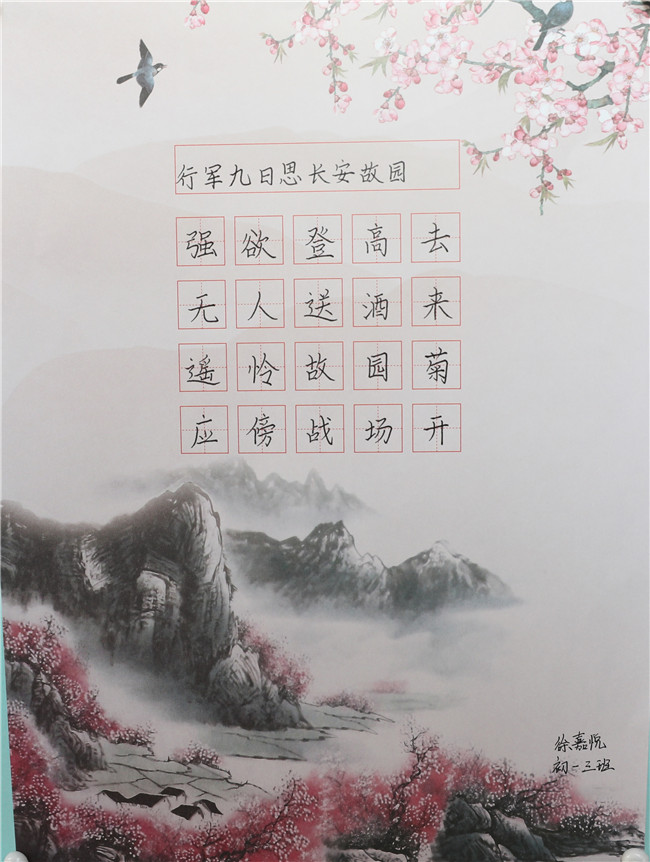 行军九日思长安故园
强欲登高去
无人送酒来
遥怜故园菊
应傍战场开
徐嘉悦
初一三班